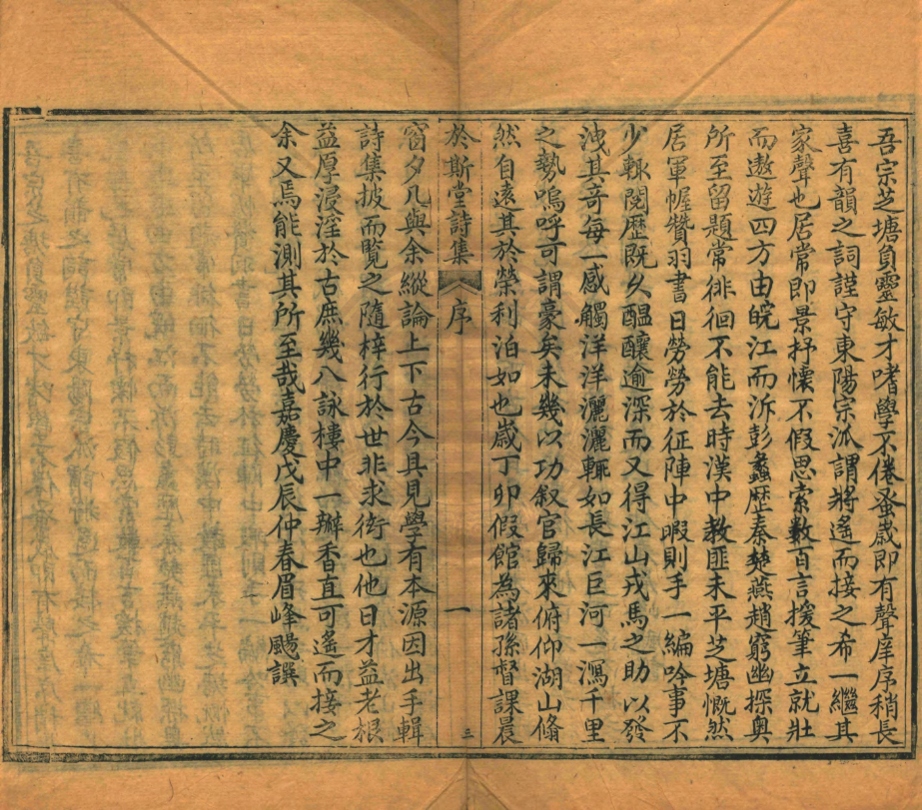 吾宗芝塘負靈敏才嗜學不倦蚤歲即有聲庠序稍長
喜有韻之詞謹守東陽宗派謂將遙而接之希一繼其
家聲也居常即景抒懷不假思索數百言援筆立就壯
而遨遊四方由皖江而泝彭蠡歷秦楚燕趙窮幽探奧
所至留題常徘徊不能去時漢中教匪未平芝塘慨然
居軍幄贊羽書日勞勞於征陣中暇則手一編吟事不
少輟閱歷既久醞釀逾深而又得江山戎馬之助以發
洩其奇每一感觸洋洋灑灑輒如長江巨河一瀉千里
之勢嗚呼可謂豪矣未幾以功敘官歸來俯仰湖山翛
然自遠其於榮利泊如也歲丁卯假館為諸孫督課晨
於斯堂詩集 序 一 三
窗夕几與余縱論上下古今具見學有本源因出手輯
詩集披而覽之隨梓行於世非求衒也他日才益老根
益厚浸淫於古庶幾八詠樓中一瓣香直可遙而接之
余又焉能測其所至哉嘉慶戊辰仲春眉峰颺譔